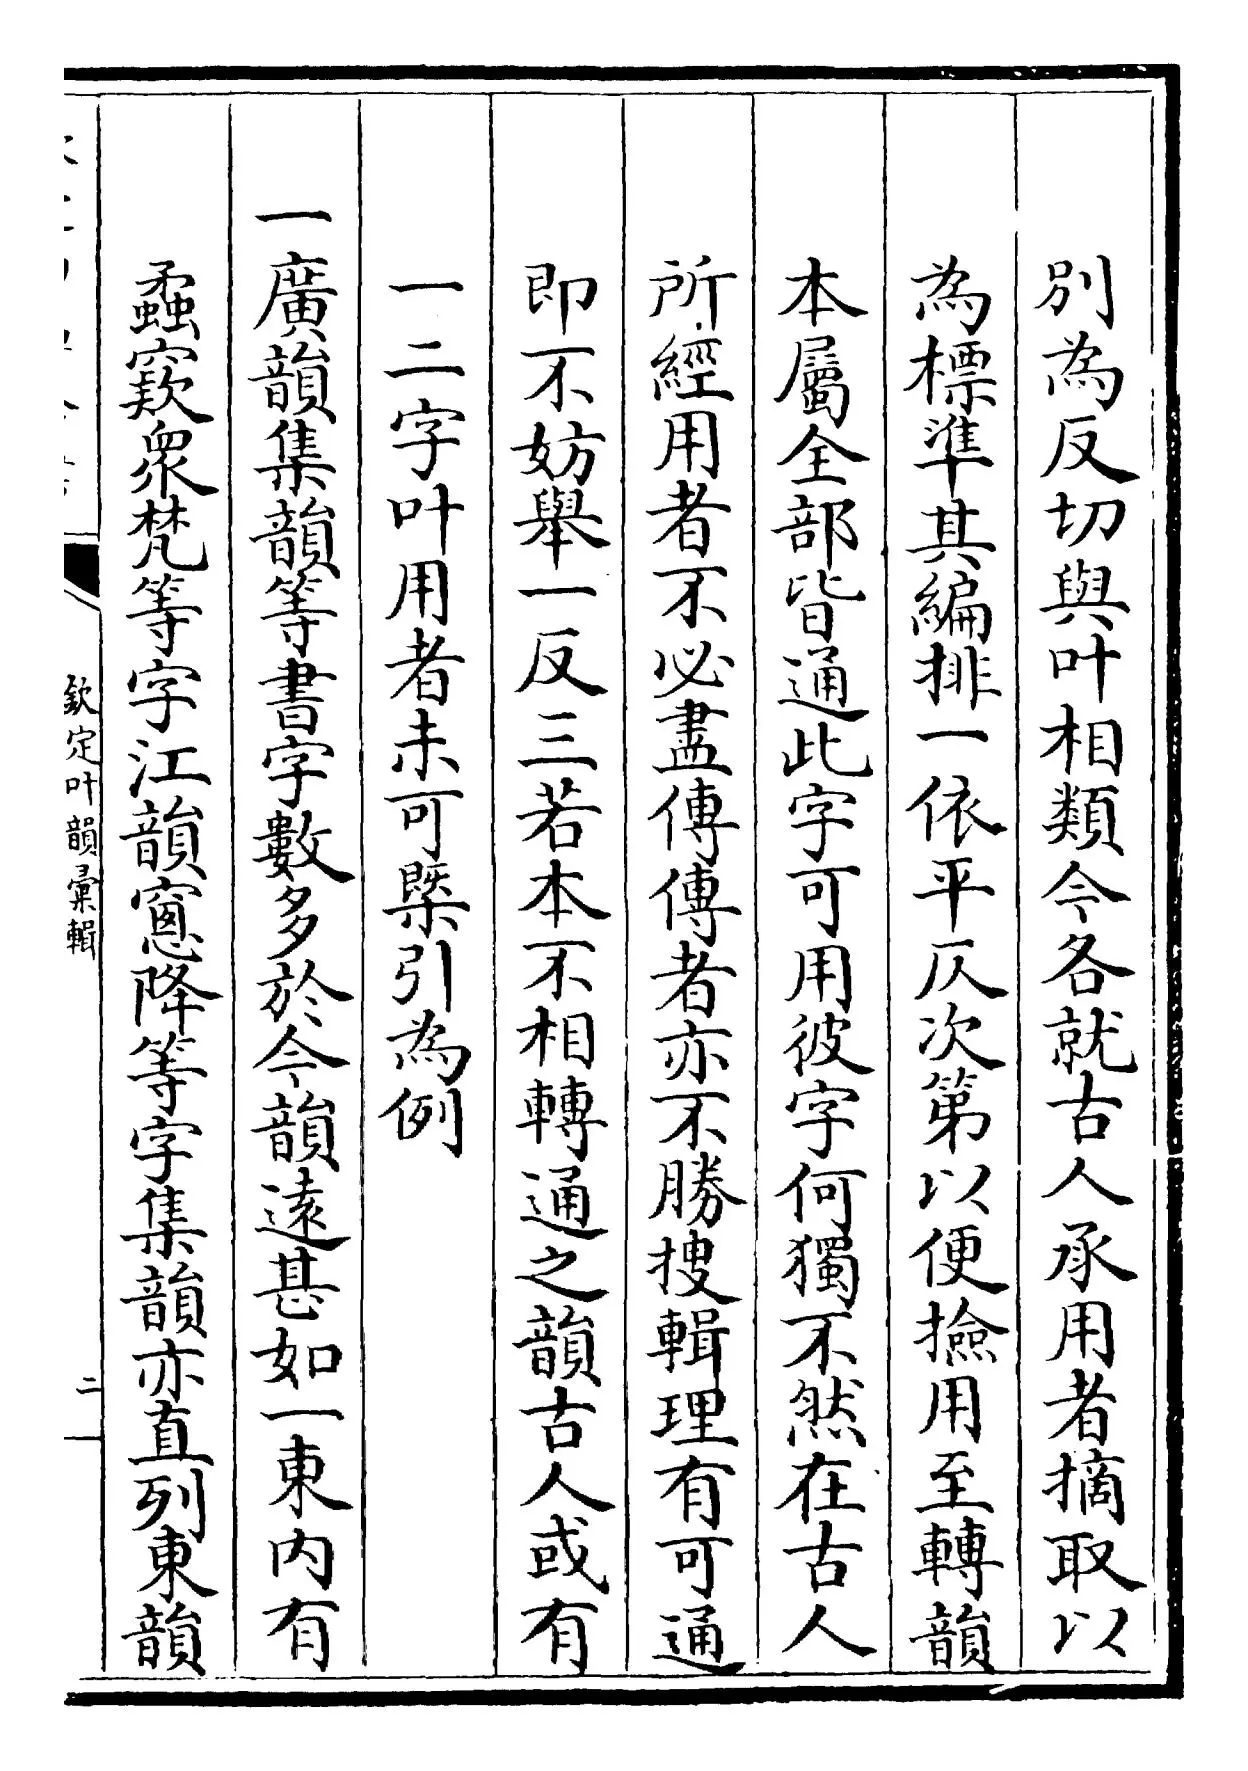 別為反切與叶相類今各就古人承用者摘取以
為標準其編排一依平仄次第以便撿用至轉韻
本屬全部皆通此字可用彼字何獨不然在古人
所經用者不必盡傳傳者亦不勝搜輯理有可通
即不妨舉一反三若本不相轉通之韻古人或有
一二字叶用者未可槩引為例
一廣韻集韻等書字數多於今韻遠甚如一東內有
蟊窾衆梵等字江韻窻降等字集韻亦直列東韻
欽定叶韻彙輯
二